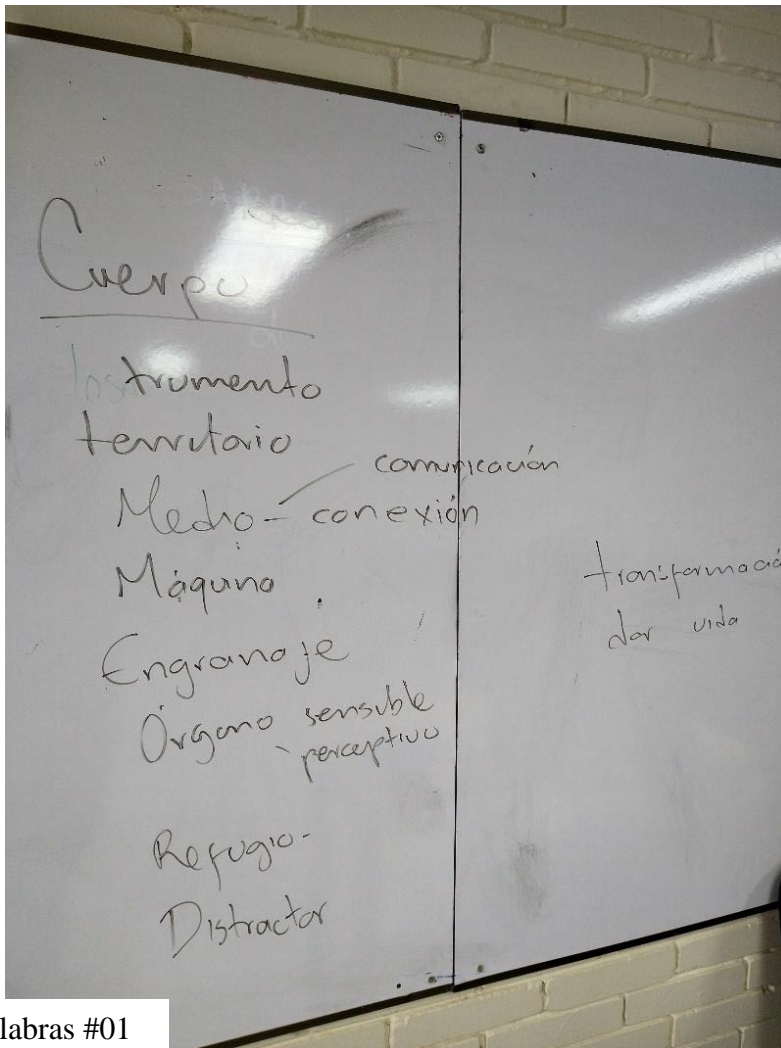 Cuerpo
Instrumento
territorio
comunicación
Medio - conexión
Máquina
Engranaje
Órgano sensible
- perceptivo
Refugio-
Distractor
transformació
dar vida
labras #01